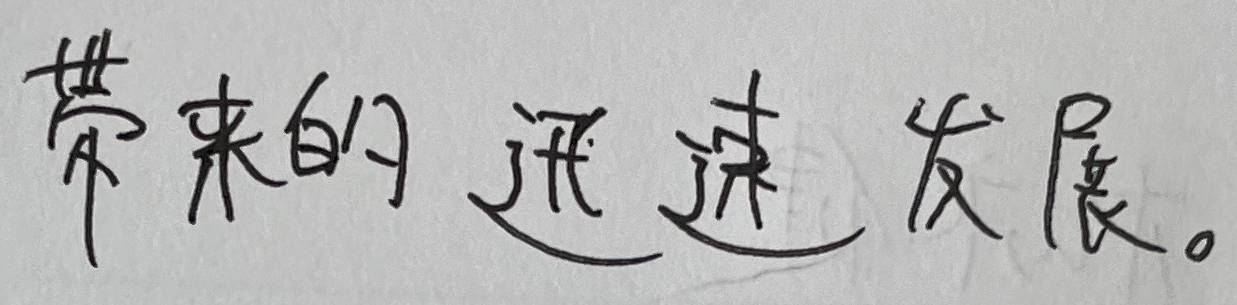 带来的迅速发展。